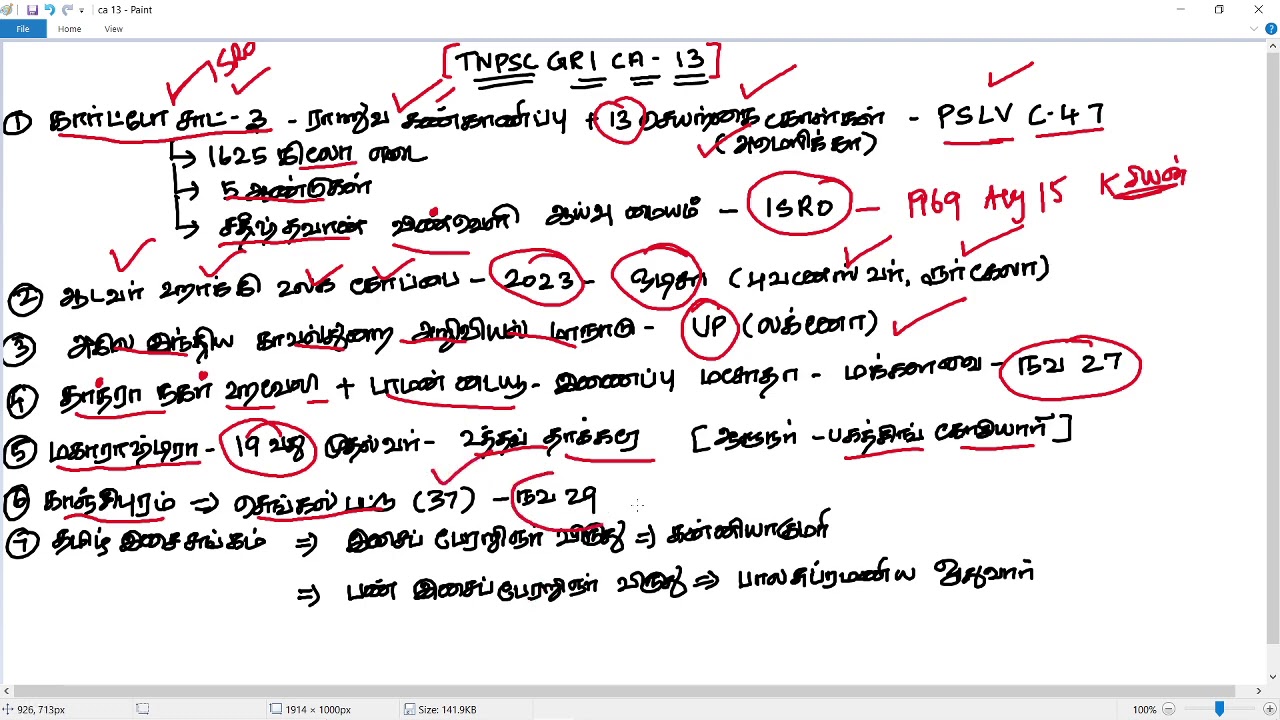 ca 13 - Paint
File Home View
[TNPSC GR1 CA - 13]
ISRO
① கார்ட்டோ சாட்-3 - ராணுவ கண்காணிப்பு + 13 செயற்கை கோள்கள் - PSLV C-47
(அமெரிக்கா)
→ 1625 கிலோ எடை
→ 5 ஆண்டுகள்
→ சதீஷ் தவான் விண்வெளி ஆய்வு மையம் - ISRO - 1969 Aug 15 K சிவன்
② ஆடவர் ஹாக்கி உலக கோப்பை - 2023 - ஒடிசா (புவனேஸ்வர், ரூர்கேலா)
③ அகில இந்திய காவல்துறை அறிவியல் மாநாடு - UP (லக்னோ)
④ தாத்ரா நகர் ஹவேலி + டாமன் டையூ - இணைப்பு மசோதா - மக்களவை - நவ 27
⑤ மகாராஷ்டிரா - 19 வது முதல்வர் - உத்தவ் தாக்கரே [ஆளுநர் - பகத்சிங் கோஷியாரி]
⑥ காஞ்சிபுரம் ⇒ செங்கல்பட்டு (37) - நவ 29
⑦ தமிழ் இசை சங்கம் ⇒ இசைப் பேரறிஞர் விருது ⇒ கன்னியாகுமரி
⇒ பண் இசைப் பேரறிஞர் விருது ⇒ பாலசுப்ரமணிய ஓதுவார்
926, 713px 1914 × 1000px Size: 141.9KB 100%